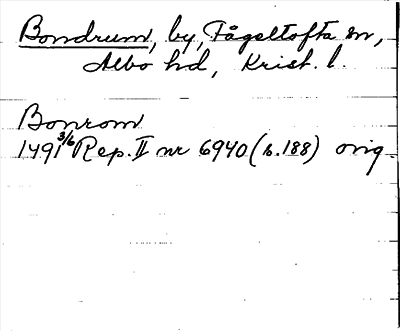 Bondrum, by, Fågeltofta sn,
Albo hd, Krist. l.
Bonrom
1491 3/6 Rep. II nr 6940 (s.188) orig.